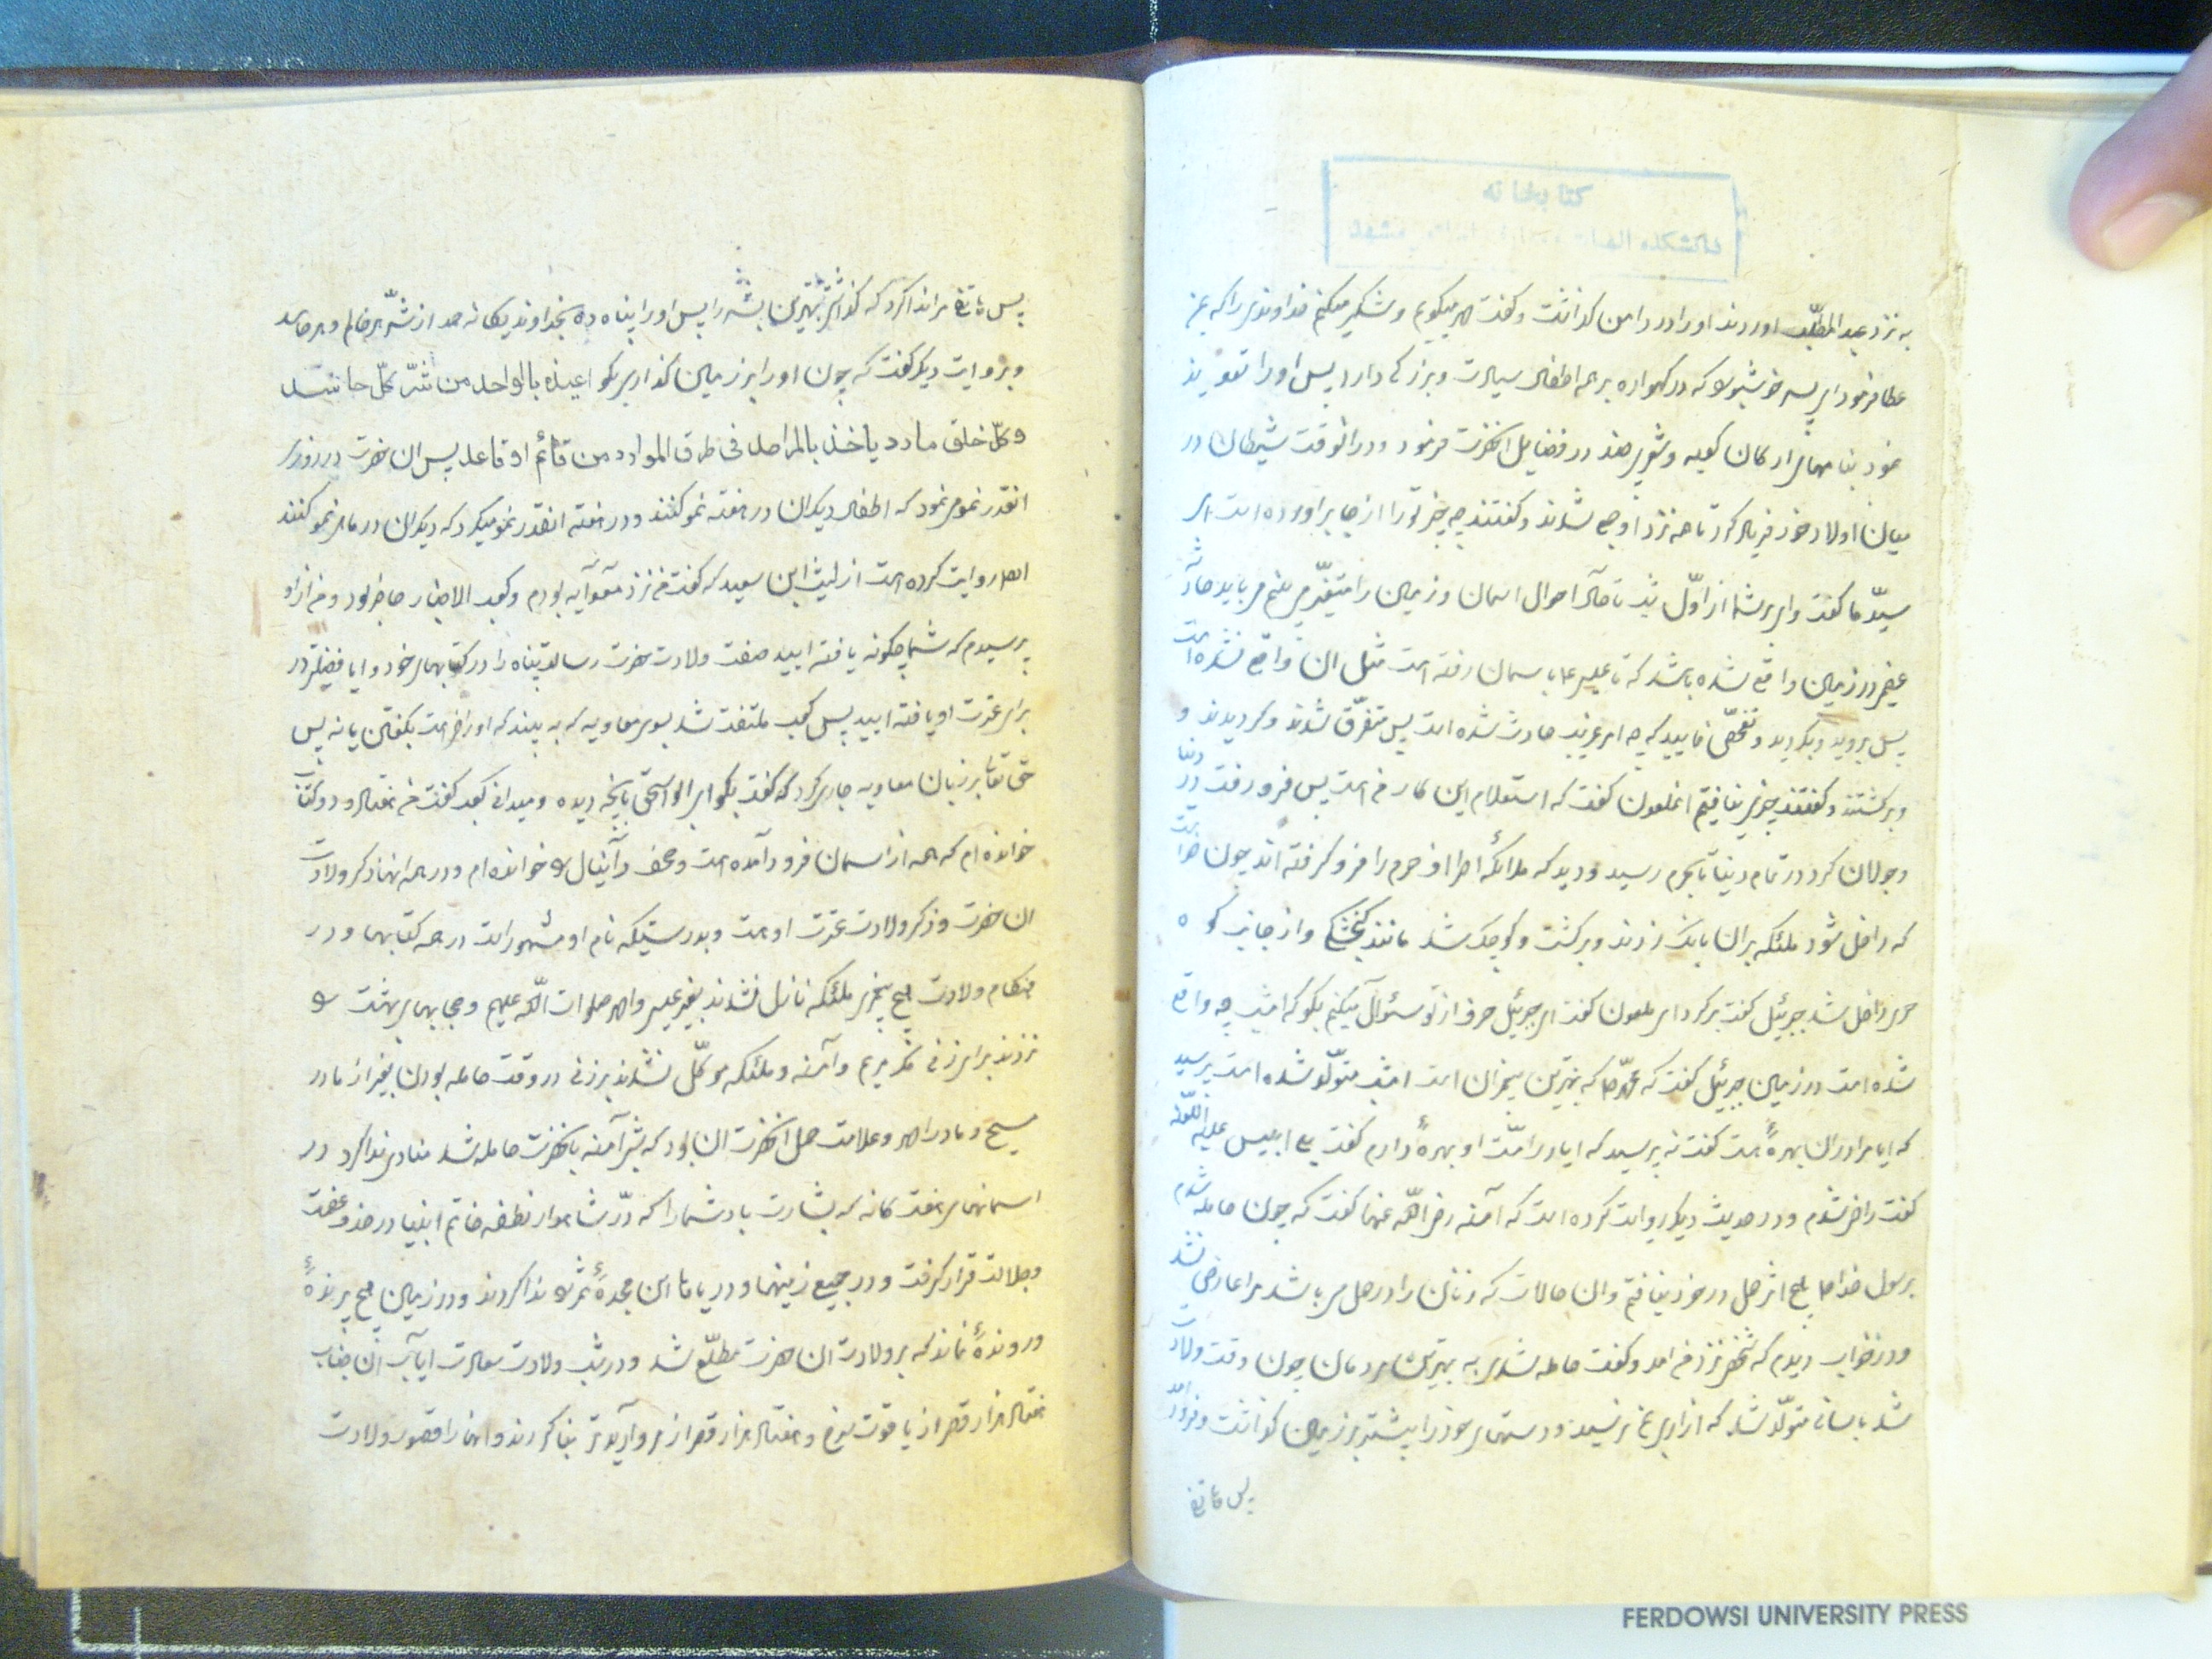 کتابخانه
دانشکده الهیات مشهد
به نزد عبد المطلب اوردند او را در دامن کذاشت و کفت حمد میکویم و شکر میکنم خداوندی را که بمن
عطا فرمود این پسر خوشبو را که در کهواره بر همه اطفال سیادت و بزرکی دارد پس او را تعویذ
نمود بنامهای ارکان کعبه و شعری چند در فضایل انحضرت فرمود و در انوقت شیطان در
میان اولاد خود فریاد کرد تا همه نزد او جمع شدند و کفتند چه چیز تو را از جا براورده است ای
سید ما کفت وای بر شما از اول شب تا حال احوال اسمان و زمین را متغیر می بینم می باید حادثه
عظیمی در زمین واقع شده باشد که تا عیسی باسمان رفته است مثل ان واقع نشده است
پس بروید و بکردید و تفحص نمایید که چه امر غریب حادث شده است پس متفرق شدند و کردیدند و
و برکشتند و کفتند چیزی نیافتیم انملعون کفت که استعلام این کار من است پس فرو رفت در دنیا
و جولان کرد در تمام دنیا تا بحرم رسید و دید که ملائکه اطراف حرم را فرو کرفته اند چون خواست
که داخل شود ملئکه بر ان بانک زدند و برکشت و کوچک شد مانند کنجشکی و از جانب کوه
حری داخل شد جبرئیل کفت برکرد ای ملعون کفت ای جبرئیل حرفی از تو سئوال میکنم بکو که امشب چه واقع
شده است در زمین جبرئیل کفت که محمد ص که بهترین پیغمبران است امشب متولد شده است پرسید
که ایا مرا در ان بهره هست کفت نه پرسید که ایا در امت او بهره دارم کفت بلی ابلیس علیه اللعنه
کفت راضی شدم و در حدیث دیکر روایت کرده است که آمنه رضی الله عنها کفت که چون حامله شدم
برسول خدا ص هیچ اثر حمل در خود نیافتم و ان حالات که زنان را در حمل می باشد مرا عارض نشد
و در خواب دیدم که شخصی نزد من امد و کفت حامله شدی به بهترین مردمان چون وقت ولادت
شد باسانی متولد شد که ازاری بمن نرسید و دستهای خود را پیشتر بر زمین کذاشت و فرود امد
پس هاتفی
پس هاتفی مرا ندا کرد که کذاشتی بهترین بشر را پس او را پناه ده بخداوند یکانه صمد از شر هر ظالم و هر حاسد
و بروایت دیکر کفت که چون او را بر زمین کذاری بکو اعیذه بالواحد من شر کل حاسد
و کل خلق مارد یاخذ بالمراصد فی طرق الموارد من قائم او قاعد پس ان حضرت در روزی
انقدر نمو می نمود که اطفال دیکران در هفته نمو کنند و در هفته انقدر نمو میکرد که دیکران در ماهی نمو کنند
ایضا روایت کرده است از لیث ابن سعید که کفت من نزد معوایه بودم و کعب الاحبار حاضر بود و من از او
پرسیدم که شما چکونه یافته ایید صفت ولادت حضرت رسالتپناه را در کتابهای خود و ایا فضیلتی در
برای عترت او یافته ایید پس کعب ملتفت شد بسوی معاویه که به بیند که او راضی هست بکفتن یا نه پس
حق تعالی بر زبان معاویه جاری کرد که کفت بکو ای ابو اسحق انچه دیده و میدانی کعب کفت من هفتاد و دو کتاب
خوانده ام که همه از اسمان فرود آمده است و صحف دانیال را خوانده ام و در همه انها ذکر ولادت
ان حضرت و ذکر ولادت عترت او هست و بدرستیکه نام او مشهور است در همه کتابها و در
هنکام ولادت هیچ پیغمبری ملئکه نازل نشدند بغیر عیسی و احمد صلوات الله علیهم و حجابهای بهشت را
نزدند برای زنی مکر مریم و آمنه و ملئکه موکل نشدند بر زنی در وقت حامله بودن بغیر از مادر
مسیح و مادر احمد و علامت حمل انحضرت ان بود که شبی آمنه بانحضرت حامله شد منادی ندا کرد در
اسمانهای هفت کانه که بشارت باد شما را که در شاهوار نطفه خاتم انبیا در صدف عفت
و جلالت قرار کرفت و در جمیع زمینها و دریاها این مجده ثمر را ندا کردند و در زمین هیچ پرنده
و رونده نماند که بر ولادت ان حضرت مطلع شد و در شب ولادت سعادت ایاب ان جناب
هفتاد هزار قصر از یاقوت سرخ و هفتاد هزار قصر از مروارید تر بنا کردند و انها را قصور ولادت
FERDOWSI UNIVERSITY PRESS